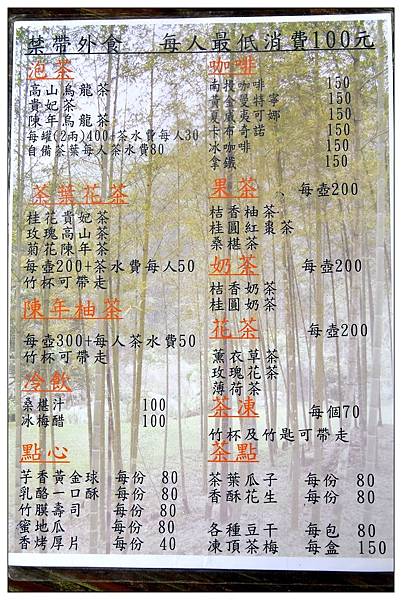 禁帶外食 每人最低消費100元
泡茶
高山烏龍茶
貴妃茶
陳年烏龍茶
每罐(2兩)400+茶水費每人30
自備茶葉每人茶水費80
茶葉花茶
桂花貴妃茶
玫瑰高山茶
菊花陳年茶
每壺200+茶水費每人50
竹杯可帶走
陳年柚茶
每壺300+每人茶水費50
竹杯可帶走
冷飲
桑椹汁 100
冰梅醋 100
點心
芋香黃金球 每份 80
乳酪一口酥 每份 80
竹膜壽司 每份 80
蜜地瓜 每份 80
香烤厚片 每份 40
咖啡
南投咖啡 150
黃金曼特寧 150
夏威夷可娜 150
卡布奇諾 150
冰咖啡 150
拿鐵 150
果茶 、每壺200
桔香柚茶
桂圓紅棗茶
桑椹茶
奶茶 每壺200
桔香奶茶
桂圓奶茶
花茶 每壺200
薰衣草茶
玫瑰花茶
薄荷茶
茶凍 每個70
竹杯及竹匙可帶走
茶點
茶葉瓜子 每份 80
香酥花生 每份 80
各種豆干 每包 80
凍頂茶梅 每盒 150